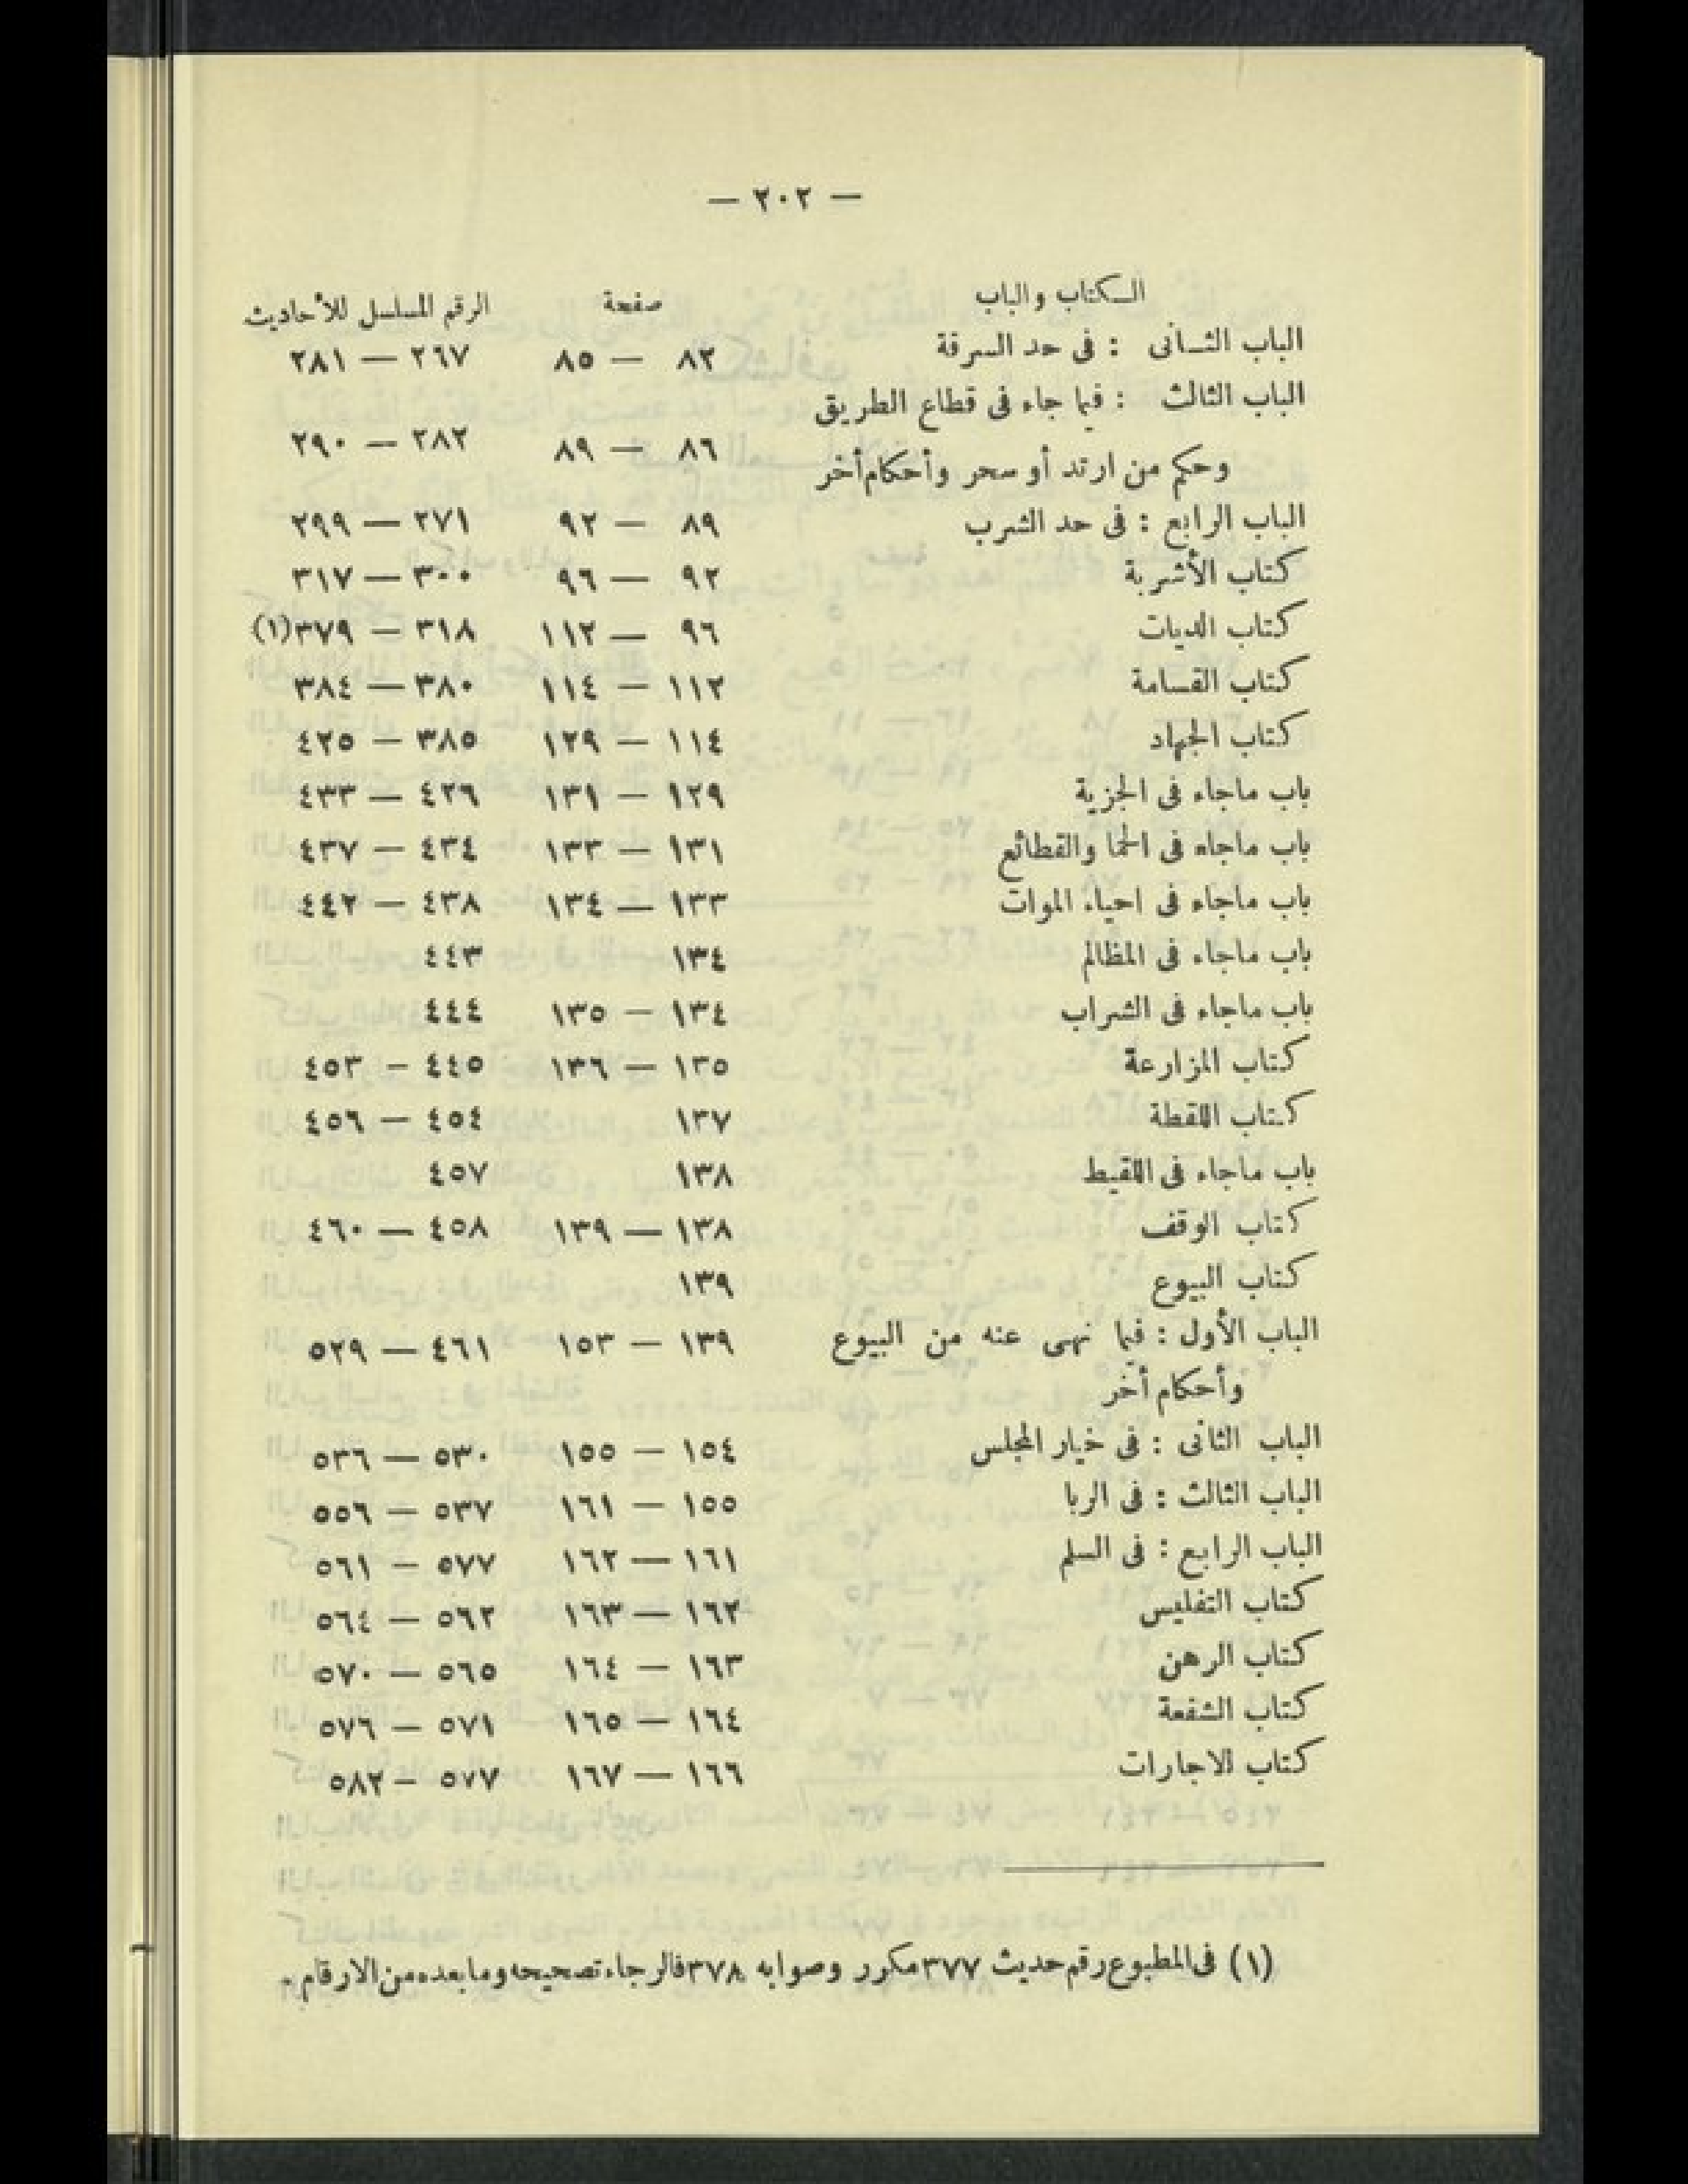 — ٢٠٢ —
الكتاب والباب صفحة الرقم المسلسل للأحاديث
الباب الثانى : فى حد السرقة ٨٢ — ٨٥ ٢٦٧ — ٢٨١
الباب الثالث : فيما جاء فى قطاع الطريق
وحكم من ارتد أو سحر وأحكام أخر ٨٦ — ٨٩ ٢٨٢ — ٢٩٠
الباب الرابع : فى حد الشرب ٨٩ — ٩٢ ٢٧١ — ٢٩٩
كتاب الأشربة ٩٢ — ٩٦ ٣٠٠ — ٣١٧
كتاب الديات ٩٦ — ١١٢ ٣١٨ — ٣٧٩(١)
كتاب القسامة ١١٢ — ١١٤ ٣٨٠ — ٣٨٤
كتاب الجهاد ١١٤ — ١٢٩ ٣٨٥ — ٤٢٥
باب ماجاء فى الجزية ١٢٩ — ١٣١ ٤٢٦ — ٤٣٣
باب ماجاء فى الحما والقطائع ١٣١ — ١٣٣ ٤٣٤ — ٤٣٧
باب ماجاء فى احياء الموات ١٣٣ — ١٣٤ ٤٣٨ — ٤٤٢
باب ماجاء فى المظالم ١٣٤ ٤٤٣
باب ماجاء فى الشراب ١٣٤ — ١٣٥ ٤٤٤
كتاب المزارعة ١٣٥ — ١٣٦ ٤٤٥ — ٤٥٣
كتاب اللقطة ١٣٧ ٤٥٤ — ٤٥٦
باب ماجاء فى اللقيط ١٣٨ ٤٥٧
كتاب الوقف ١٣٨ — ١٣٩ ٤٥٨ — ٤٦٠
كتاب البيوع ١٣٩
الباب الأول : فيما نهى عنه من البيوع ١٣٩ — ١٥٣ ٤٦١ — ٥٢٩
وأحكام أخر
الباب الثانى : فى خيار المجلس ١٥٤ — ١٥٥ ٥٣٠ — ٥٣٦
الباب الثالث : فى الربا ١٥٥ — ١٦١ ٥٣٧ — ٥٥٦
الباب الرابع : فى السلم ١٦١ — ١٦٢ ٥٧٧ — ٥٦١
كتاب التفليس ١٦٢ — ١٦٣ ٥٦٢ — ٥٦٤
كتاب الرهن ١٦٣ — ١٦٤ ٥٦٥ — ٥٧٠
كتاب الشفعة ١٦٤ — ١٦٥ ٥٧١ — ٥٧٦
كتاب الاجارات ١٦٦ — ١٦٧ ٥٧٧ — ٥٨٢
(١) فى المطبوع رقم حديث ٣٧٧ مكرر وصوابه ٣٧٨ فالرجاء تصحيحه وما بعده من الارقام .